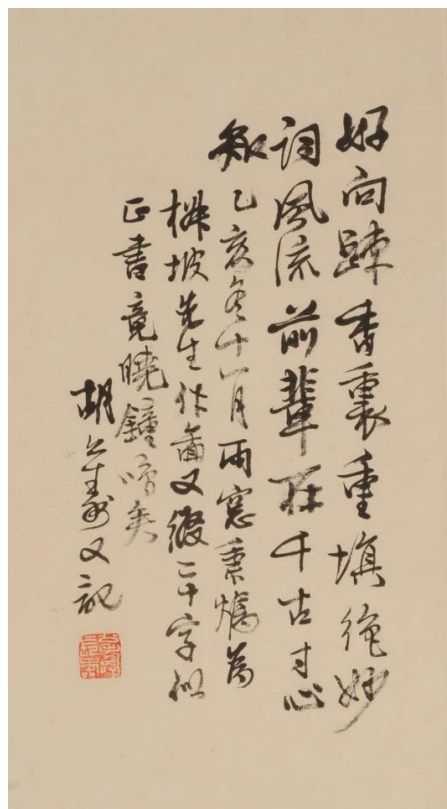 好向踈香裏重填絶妙
詞風流前輩在千古寸心
知乙亥冬十一月雨窓秉燭為
槑坡先生作画又綴二十字似
正書竟曉鐘鳴矣
胡公壽又記